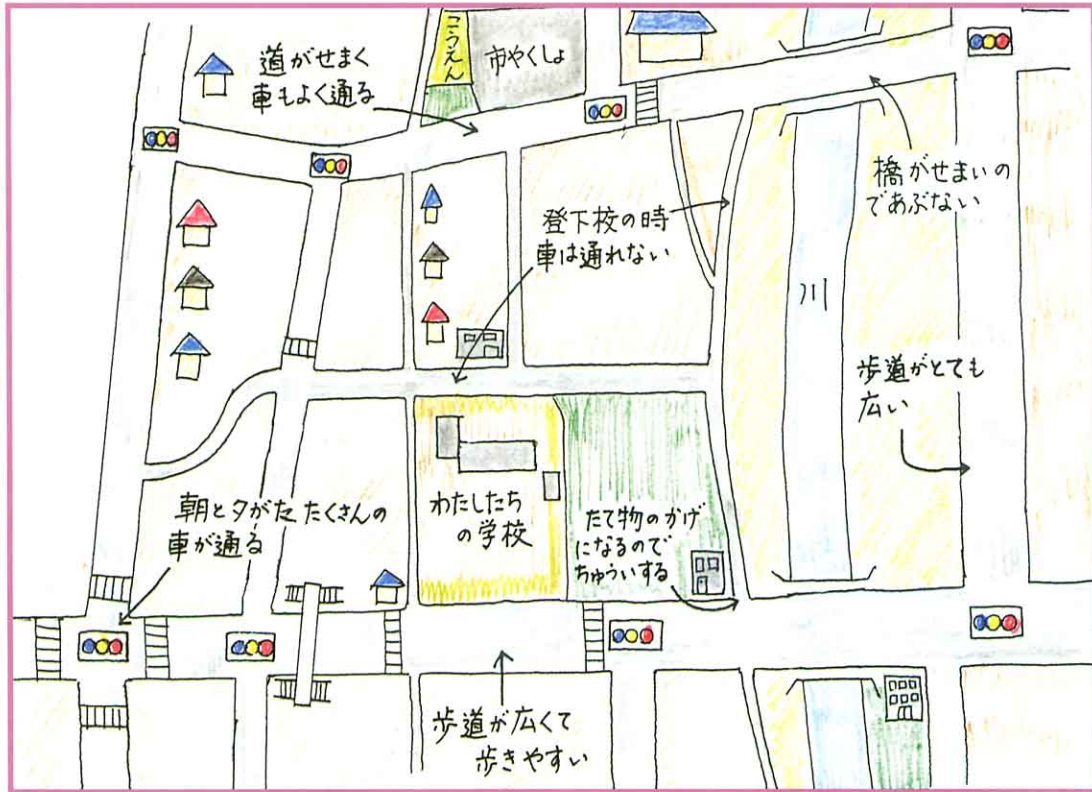 道がせまく
車もよく通る
こうえん
市やくしょ
橋がせまいの
であぶない
登下校の時
車は通れない
川
歩道がとても
広い
朝と夕がたたくさんの
車が通る
わたしたち
の学校
たて物のかげ
になるので
ちゅういする
歩道が広くて
歩きやすい